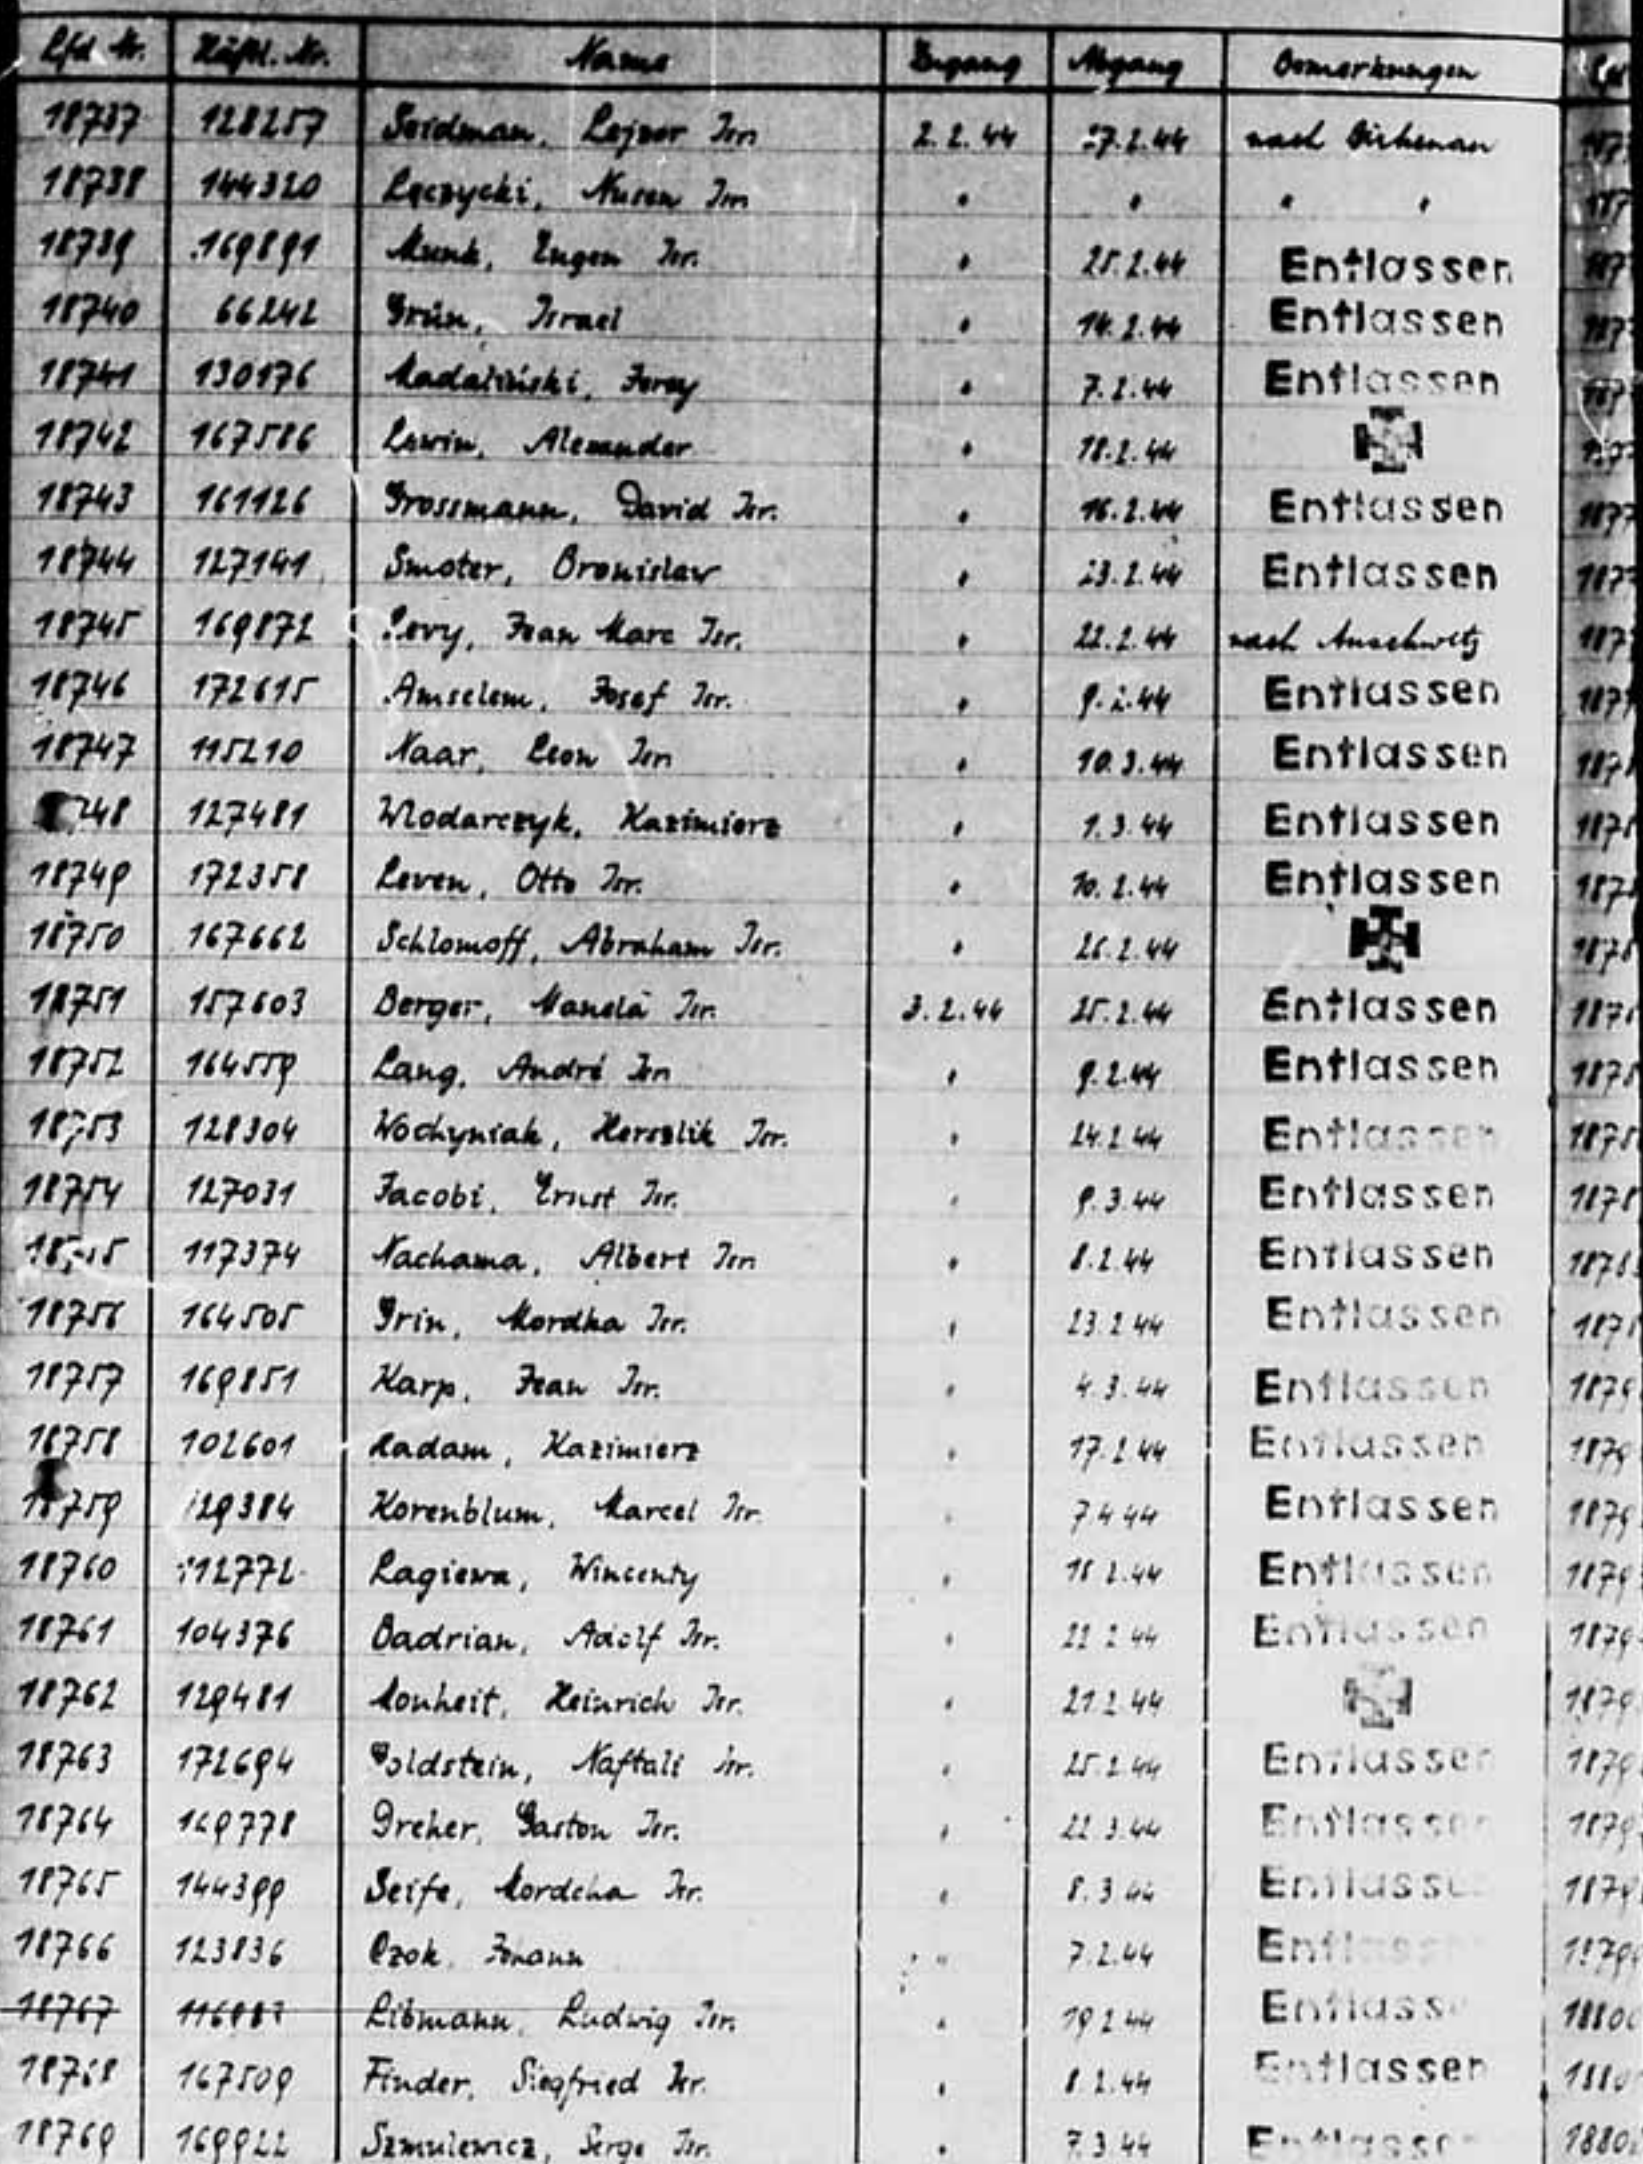 Lfd Nr. Häftl. Nr. Name Zugang Abgang Bemerkungen
18737 128257 Seidman, Lejzor Isr. 2.2.44 27.2.44 nach Birkenau
18738 144320 Łęczycki, Nusen Isr. " " " "
18739 169891 Munk, Eugen Isr. " 25.2.44 Entlassen
18740 66242 Grün, Israel " 14.2.44 Entlassen
18741 130176 Madaliński, Jerzy " 7.2.44 Entlassen
18742 167586 Lewin, Alexander " 18.2.44
18743 161126 Grossmann, David Isr. " 16.2.44 Entlassen
18744 127141 Smoter, Bronislaw " 23.2.44 Entlassen
18745 169872 Levy, Jean Marc Isr. " 22.2.44 nach Auschwitz
18746 172615 Amselem, Josef Isr. " 9.2.44 Entlassen
18747 115210 Naar, Leon Isr. " 10.3.44 Entlassen
748 127481 Wlodarczyk, Kazimierz " 1.3.44 Entlassen
18749 172358 Leven, Otto Isr. " 10.2.44 Entlassen
18750 167662 Schlomoff, Abraham Isr. " 26.2.44
18751 157603 Berger, Manela Isr. 3.2.44 25.2.44 Entlassen
18752 164559 Lang, André Isr. " 9.2.44 Entlassen
18753 128304 Wochyniak, Herszlik Isr. " 24.2.44 Entlassen
18754 127031 Jacobi, Ernst Isr. " 9.3.44 Entlassen
18755 117374 Nachama, Albert Isr. " 8.2.44 Entlassen
18756 164505 Grin, Mordka Isr. " 23.2.44 Entlassen
18757 169851 Karp, Jean Isr. " 4.3.44 Entlassen
18758 102601 Radam, Kazimierz " 17.2.44 Entlassen
18759 129384 Korenblum, Marcel Isr. " 7.4.44 Entlassen
18760 112772 Lagiewa, Wincenty " 18.2.44 Entlassen
18761 104376 Badrian, Adolf Isr. " 22.2.44 Entlassen
18762 129481 Monheit, Heinrich Isr. " 21.2.44
18763 172694 Goldstein, Naftali Isr. " 25.2.44 Entlassen
18764 169778 Dreher, Gaston Isr. " 22.3.44 Entlassen
18765 144399 Seife, Mordcha Isr. " 8.3.44 Entlassen
18766 123836 Czok, Johann " 7.2.44 Entlassen
18767 Libmann, Ludwig Isr. " 19.2.44 Entlassen
18768 167509 Finder, Siegfried Isr. " 8.2.44 Entlassen
18769 169922 Szmulewicz, Serge Isr. " 7.3.44 Entlassen